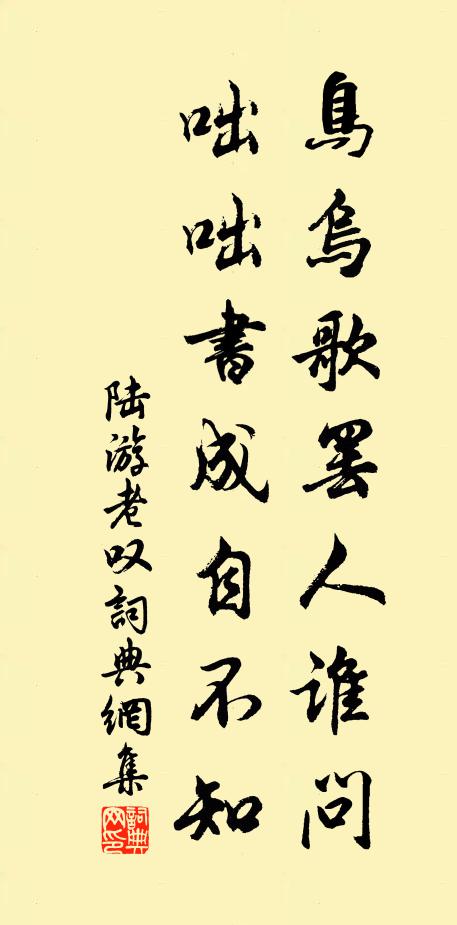 鳥烏歌罷人誰問
咄咄書成自不知
陸游老叹詞典網集
詞典
网印